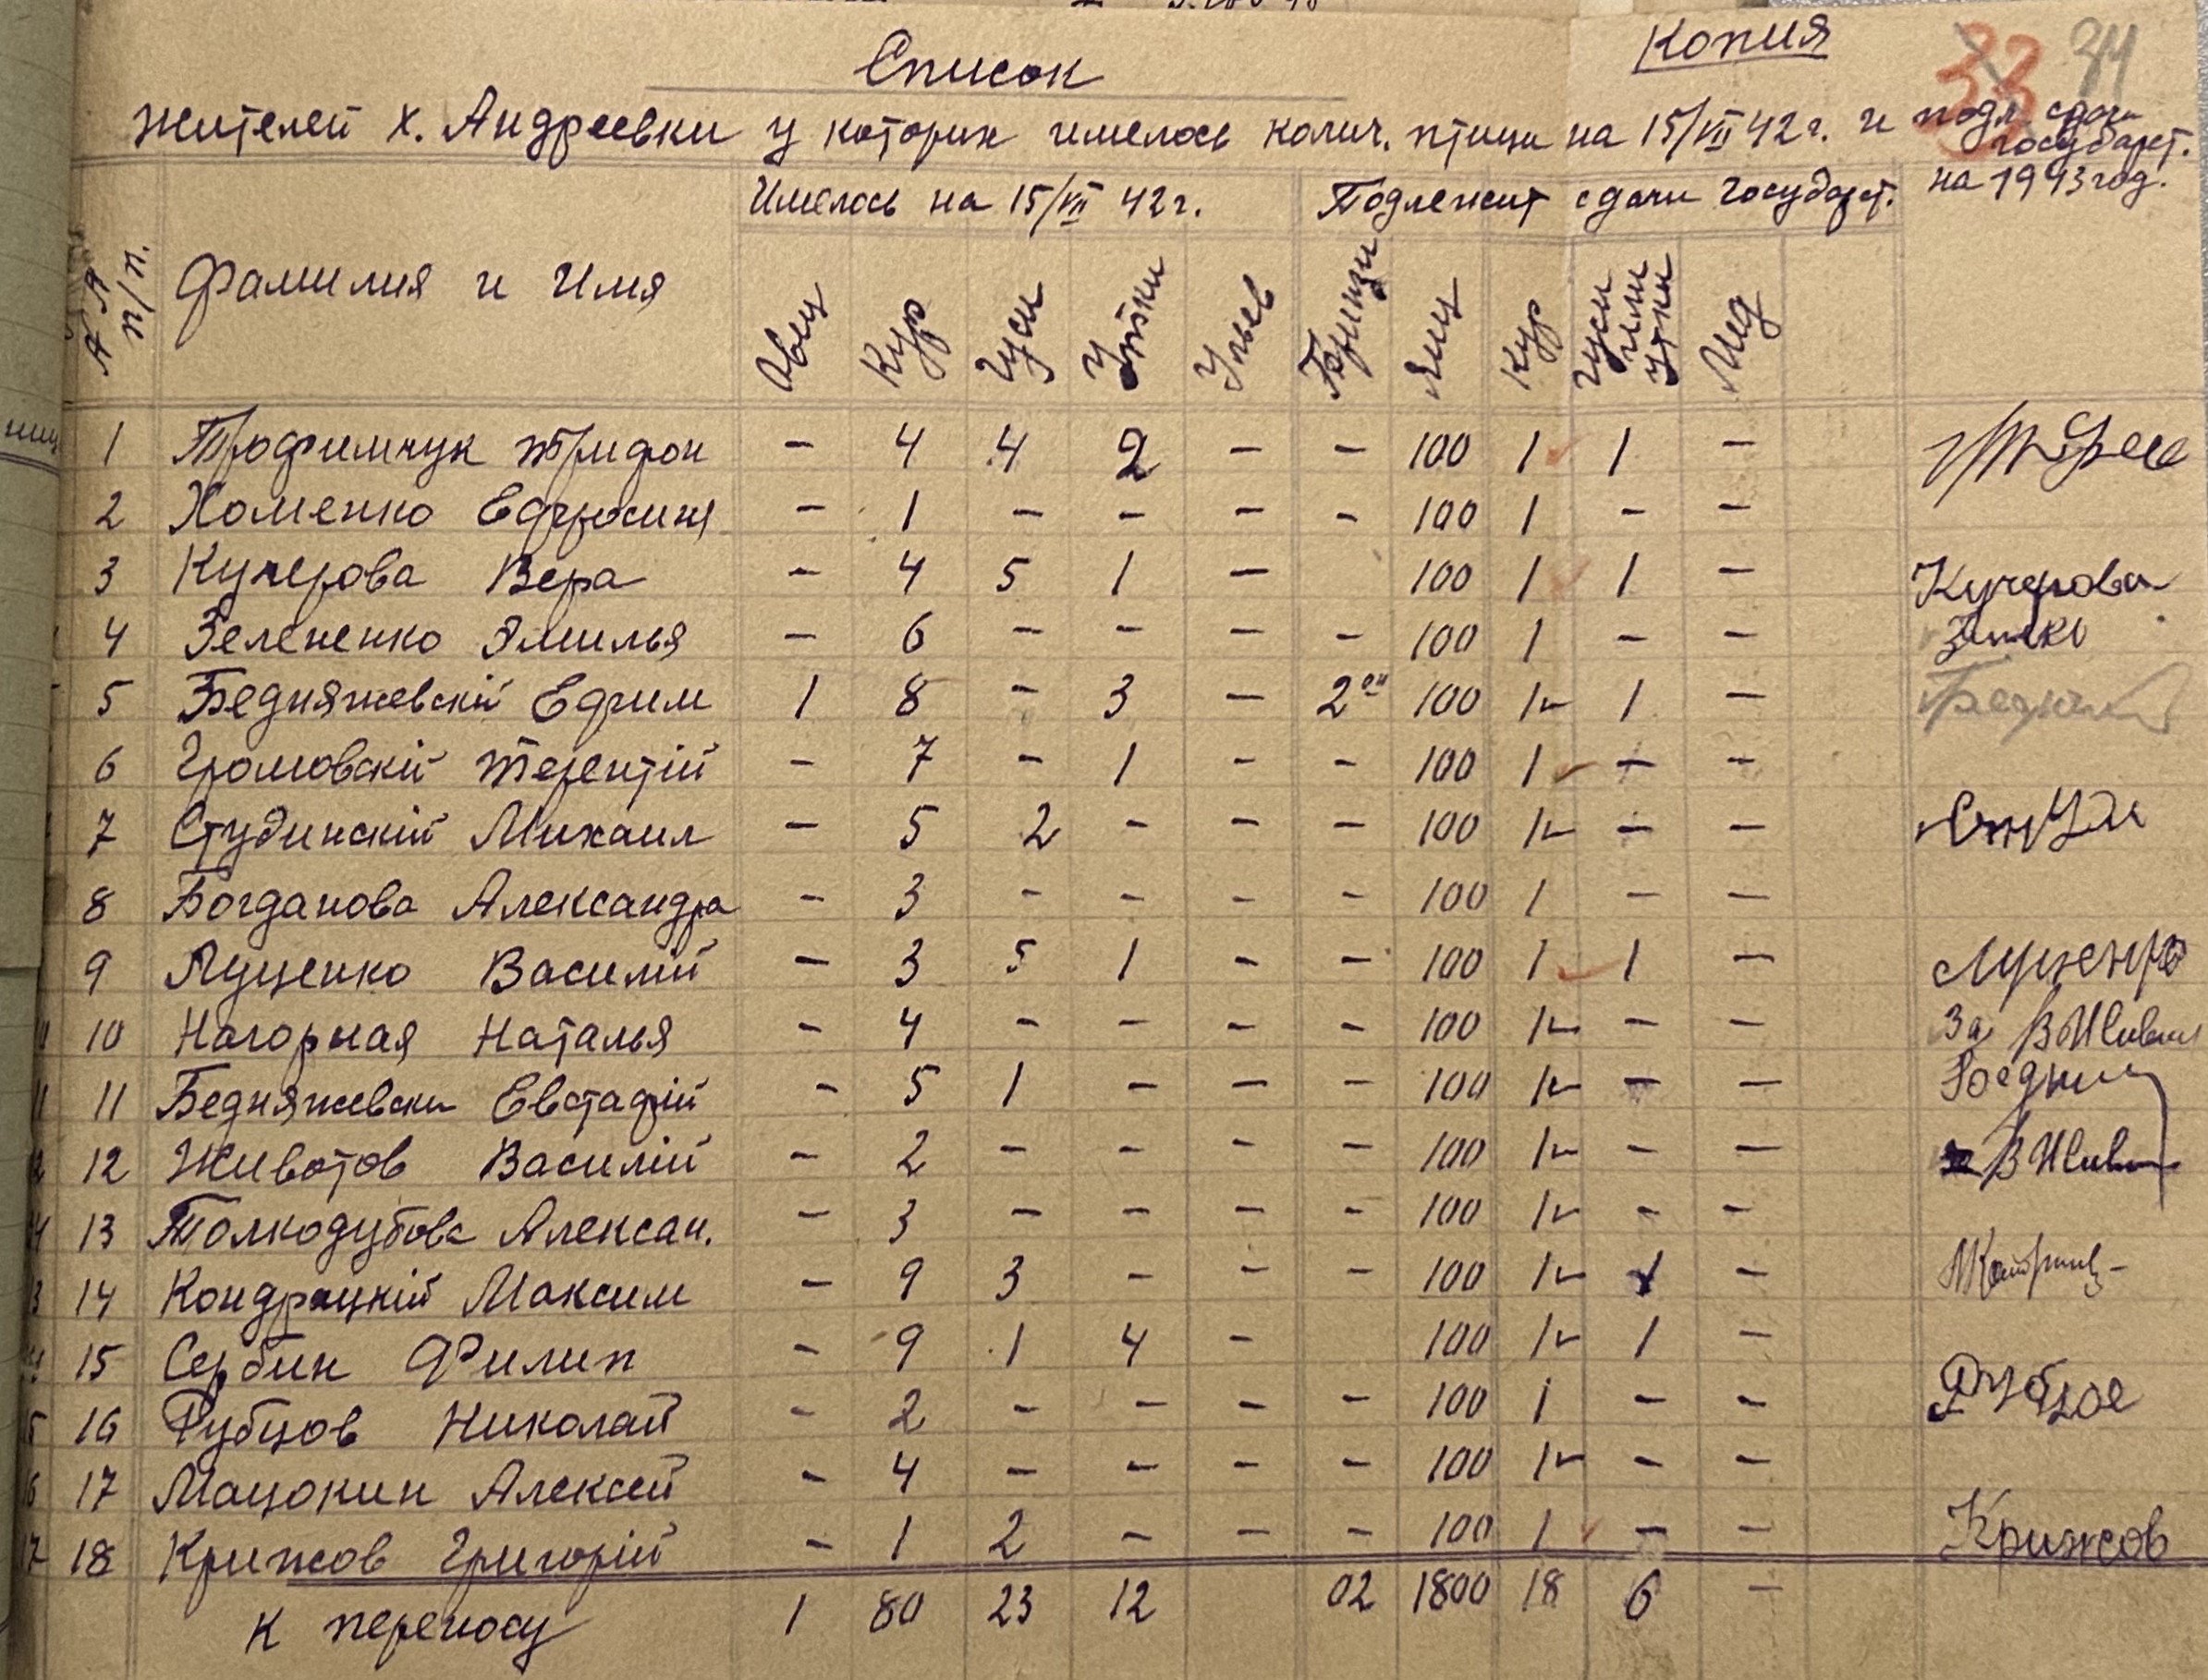 Копия
33 34
Список
жителей х. Андреевки у которих имелось колич. птици на 15/VII 42 г. и подл. сдачи государст. на 1943 год.
Имелось на 15/VII 42 г. Подлежит сдачи государст.
п/п. Фамилия и Имя Овец Кур Гуси Утки Ульев Яиц Кур Гуси или утки Мед
1 Трофимчук Трифон - 4 4 2 - - 100 1 1 -
2 Хоменко Ефросиня - 1 - - - - 100 1 - -
3 Кучерова Вера - 4 5 1 - 100 1 1 - Кучерова
4 Зелененко Эмилья - 6 - - - - 100 1 - -
5 Бедняжевскій Ефим 1 8 - 3 - 2 100 1 1 -
6 Громовскій Терентій - 7 - 1 - - 100 1 - -
7 Студинскій Михаил - 5 2 - - - 100 1 - -
8 Богданова Александра - 3 - - - - 100 1 - -
9 Луценко Василій - 3 5 1 - - 100 1 1 -
10 Нагорная Наталья - 4 - - - - 100 1 - - За
11 Бедняжевски Евстафій - 5 1 - - - 100 1 - -
12 Животов Василій - 2 - - - - 100 1 - -
13 Толкодубова Алексан. - 3 - - - - 100 1 - -
14 Кондрацкій Максим - 9 3 - - - 100 1 1 -
15 Сербин Филип - 9 1 4 - 100 1 1 -
16 Рубцов Николай - 2 - - - - 100 1 - - Рубцов
17 Мацокин Алексей - 4 - - - - 100 1 - -
18 Крижов Григорій - 1 2 - - - 100 1 - - Крижов
К переносу 1 80 23 12 02 1800 18 6 -